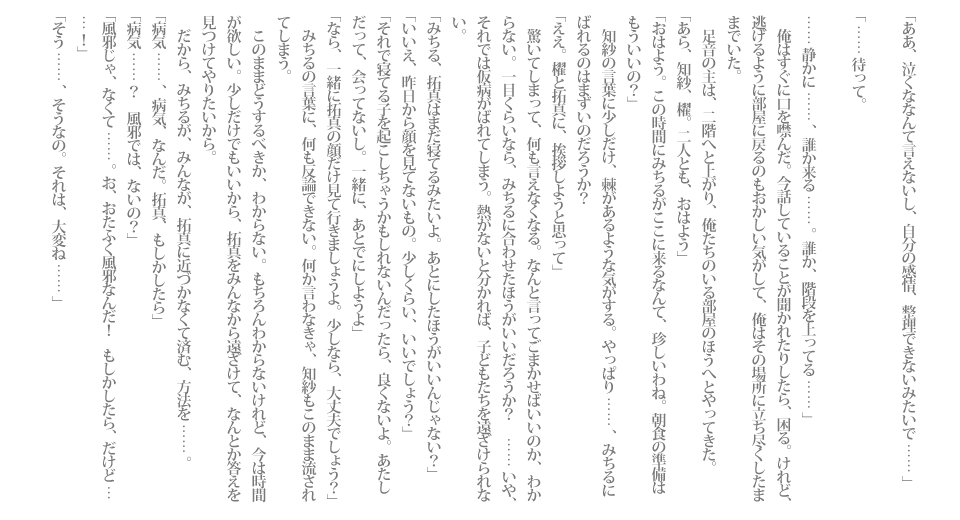 「ああ、泣くななんて言えないし、自分の感情、整理できないみたいで……」
「……待って。
……静かに……、誰か来る……。誰か、階段を上ってる……」
俺はすぐに口を噤んだ。今話していることが聞かれたりしたら、困る。けれど、
逃げるように部屋に戻るのもおかしい気がして、俺はその場所に立ち尽くしたま
までいた。
足音の主は、二階へと上がり、俺たちのいる部屋のほうへとやってきた。
「あら、知紗、櫂。二人とも、おはよう」
「おはよう。この時間にみちるがここに来るなんて、珍しいわね。朝食の準備は
もういいの？」
知紗の言葉に少しだけ、棘があるような気がする。やっぱり……、みちるに
ばれるのはまずいのだろうか？
「ええ。櫂と拓真に、挨拶しようと思って」
驚いてしまって、何も言えなくなる。なんと言ってごまかせばいいのか、わか
らない。一目くらいなら、みちるに合わせたほうがいいだろうか？　……いや、
それでは仮病がばれてしまう。熱がないと分かれば、子どもたちを遠ざけられな
い。
「みちる、拓真はまだ寝てるみたいよ。あとにしたほうがいいんじゃない？」
「いいえ、昨日から顔を見てないもの。少しくらい、いいでしょう？」
「それで寝てる子を起こしちゃうかもしれないんだったら、良くないよ。あたし
だって、会ってないし。一緒に、あとでにしようよ」
「なら、一緒に拓真の顔だけ見て行きましょうよ。少しなら、大丈夫でしょう？」
みちるの言葉に、何も反論できない。何か言わなきゃ、知紗もこのまま流され
てしまう。
このままどうするべきか、わからない。もちろんわからないけれど、今は時間
が欲しい。少しだけでもいいから、拓真をみんなから遠ざけて、なんとか答えを
見つけてやりたいから。
だから、みちるが、みんなが、拓真に近づかなくて済む、方法を……。
「病気……、病気、なんだ。拓真、もしかしたら」
「病気……？　風邪では、ないの？」
「風邪じゃ、なくて……。お、おたふく風邪なんだ！　もしかしたら、だけど…
…！」
「そう……、そうなの。それは、大変ね……」